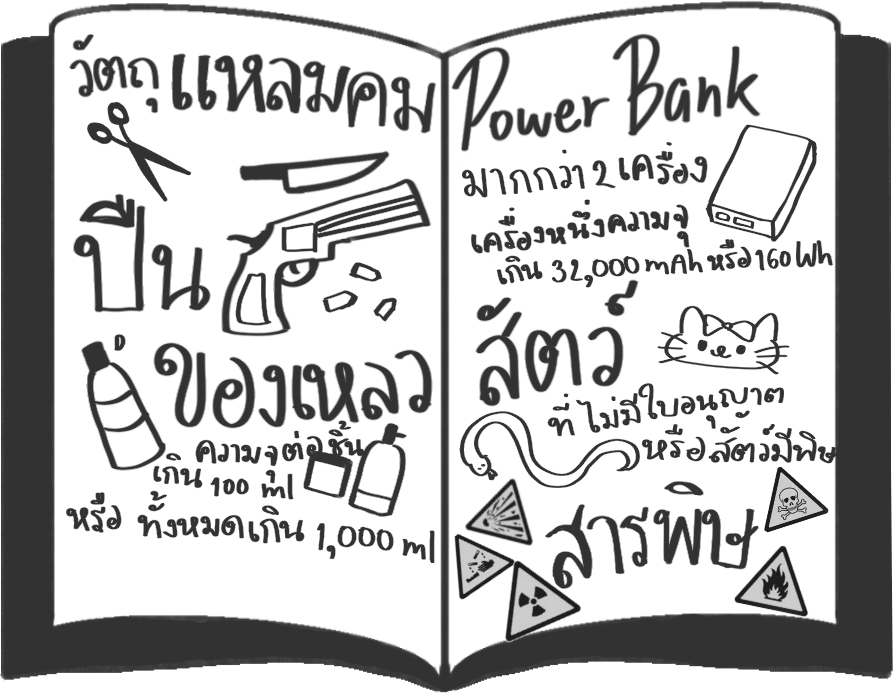 วัตถุแหลมคม
ปืน
ของเหลว
ความจุต่อชิ้น
เกิน 100 ml
หรือ ทั้งหมดเกิน 1,000 ml
Power Bank
มากกว่า 2 เครื่อง
เครื่องหนึ่งความจุ
เกิน 32,000 mAh หรือ 160 Wh
สัตว์
ที่ไม่มีใบอนุญาต
หรือสัตว์มีพิษ
สารพิษ